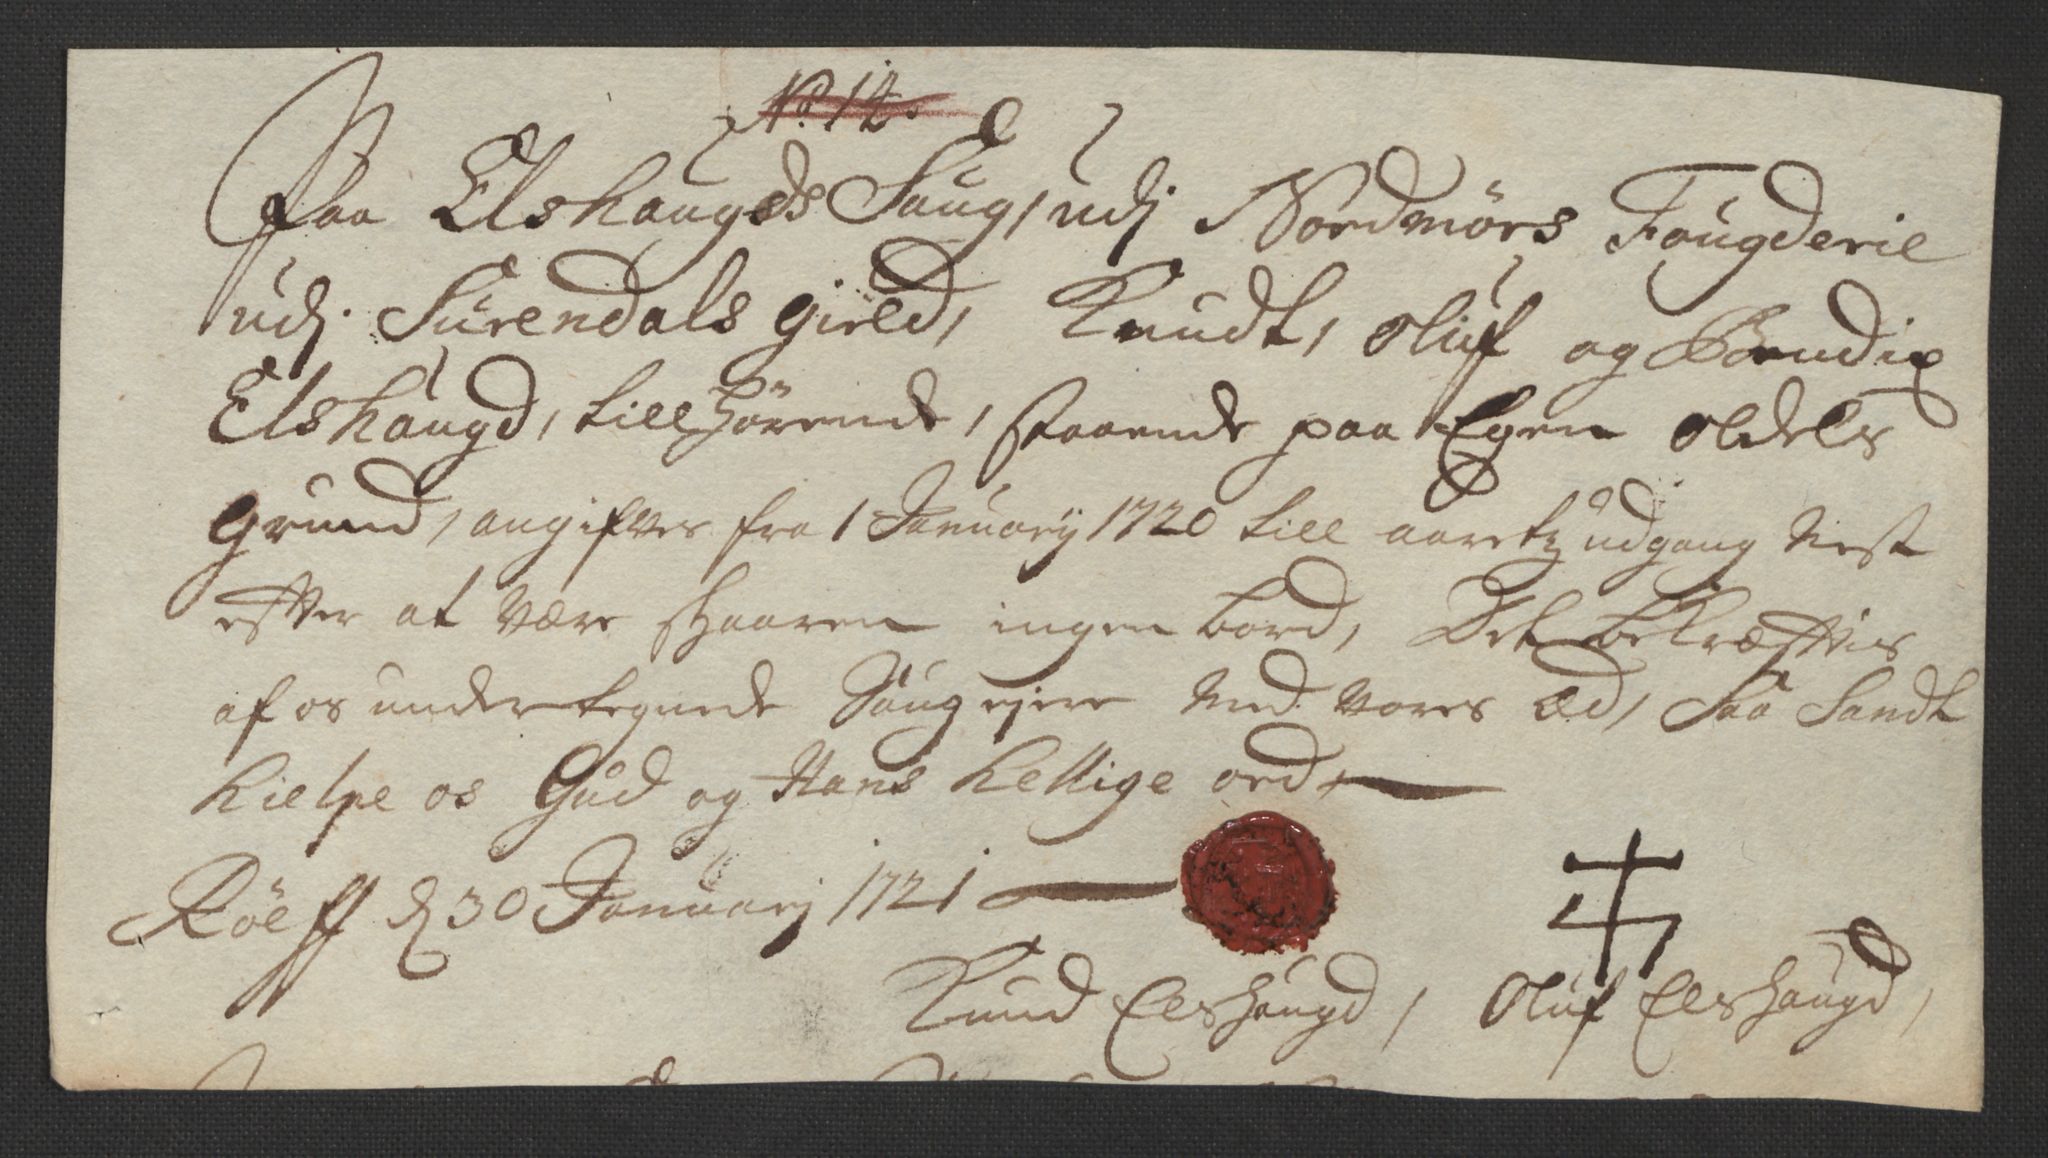 No. 12.
Paa Elshaugds Saug, udj Nordmörs Fougderie
udj Surendals gield, Knudt, Oluf og Bendix
Elshaugd, tillhörende, staaende paa Egen Oldels
grund, angifves fra 1 January 1720 till aaretz udgang Nest
effter at være skaaren ingen bord, Det bekræfftes
af os undertegnede Saug ejere Med Vores Æd, Saa Sandt
hielpe os Gud og Hans hellige ord
Röeff d 30 January 1721
Knud Elshaugd, Oluf Elshaugd,